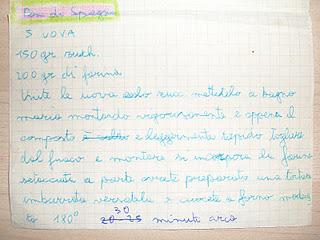 Pan di Spagna
5 UOVA
150 gr zucch.
200 gr di farina
Unite le uova allo zucc mettetelo a bagno
maria montando vigorosamente e appena il
composto è caldo e leggermente tiepido togliere
dal fuoco e montare si incorpora la farina
setacciata a parte avrete preparato una tortiera
imburrata versatela e cuocete a forno moderato
180° 30
20-25 minuti circa